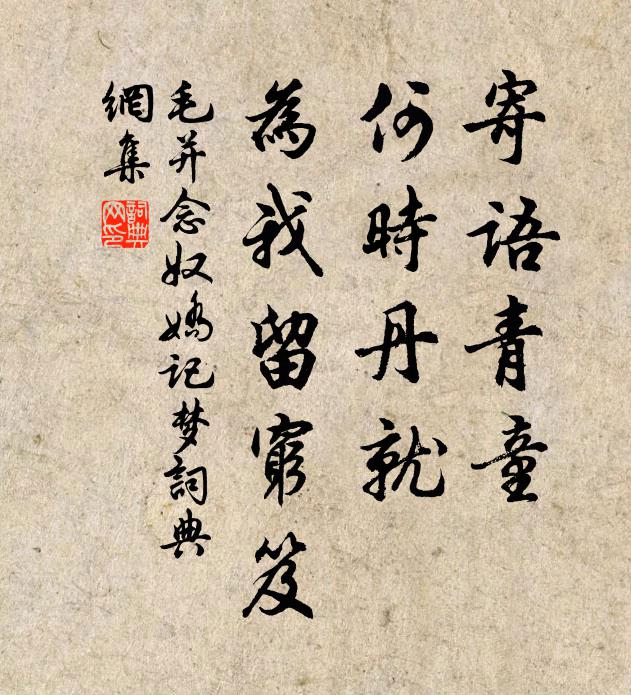 寄語青童
何時丹就
為我留窮笈
毛幵念奴嬌記梦詞典
網集
詞典
网印